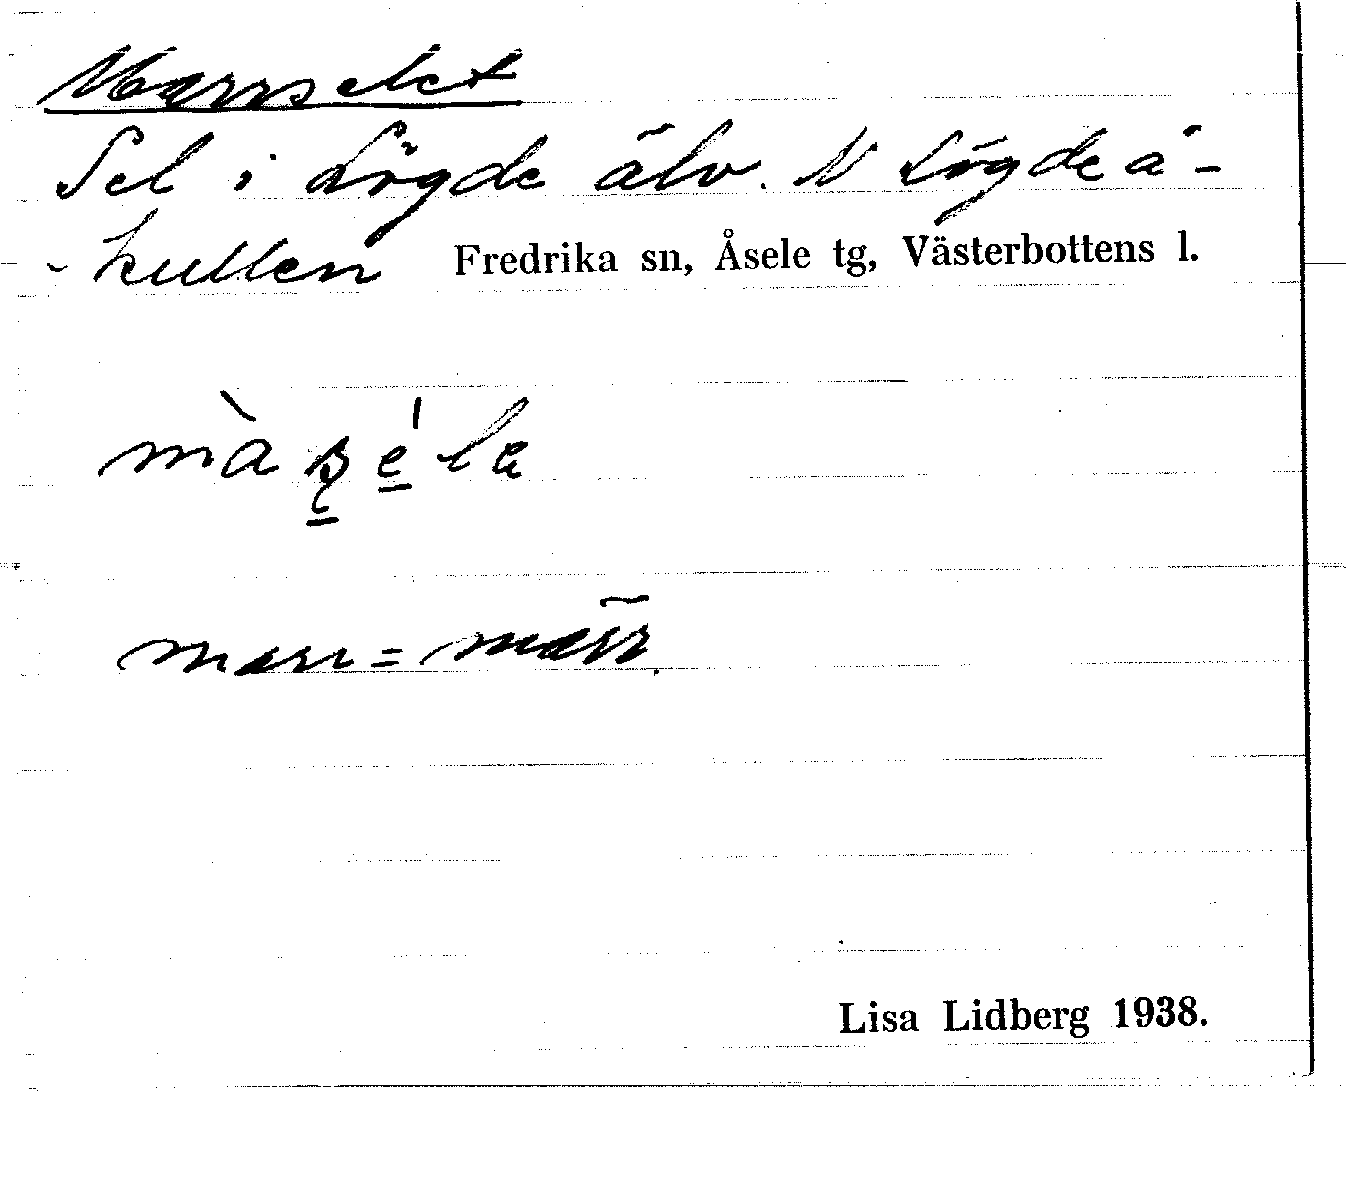 Marrselet
Sel i Lögde älv. N Lögdeå-
-kullen Fredrika sn, Åsele tg, Västerbottens l.
marr = märr.
Lisa Lidberg 1938.